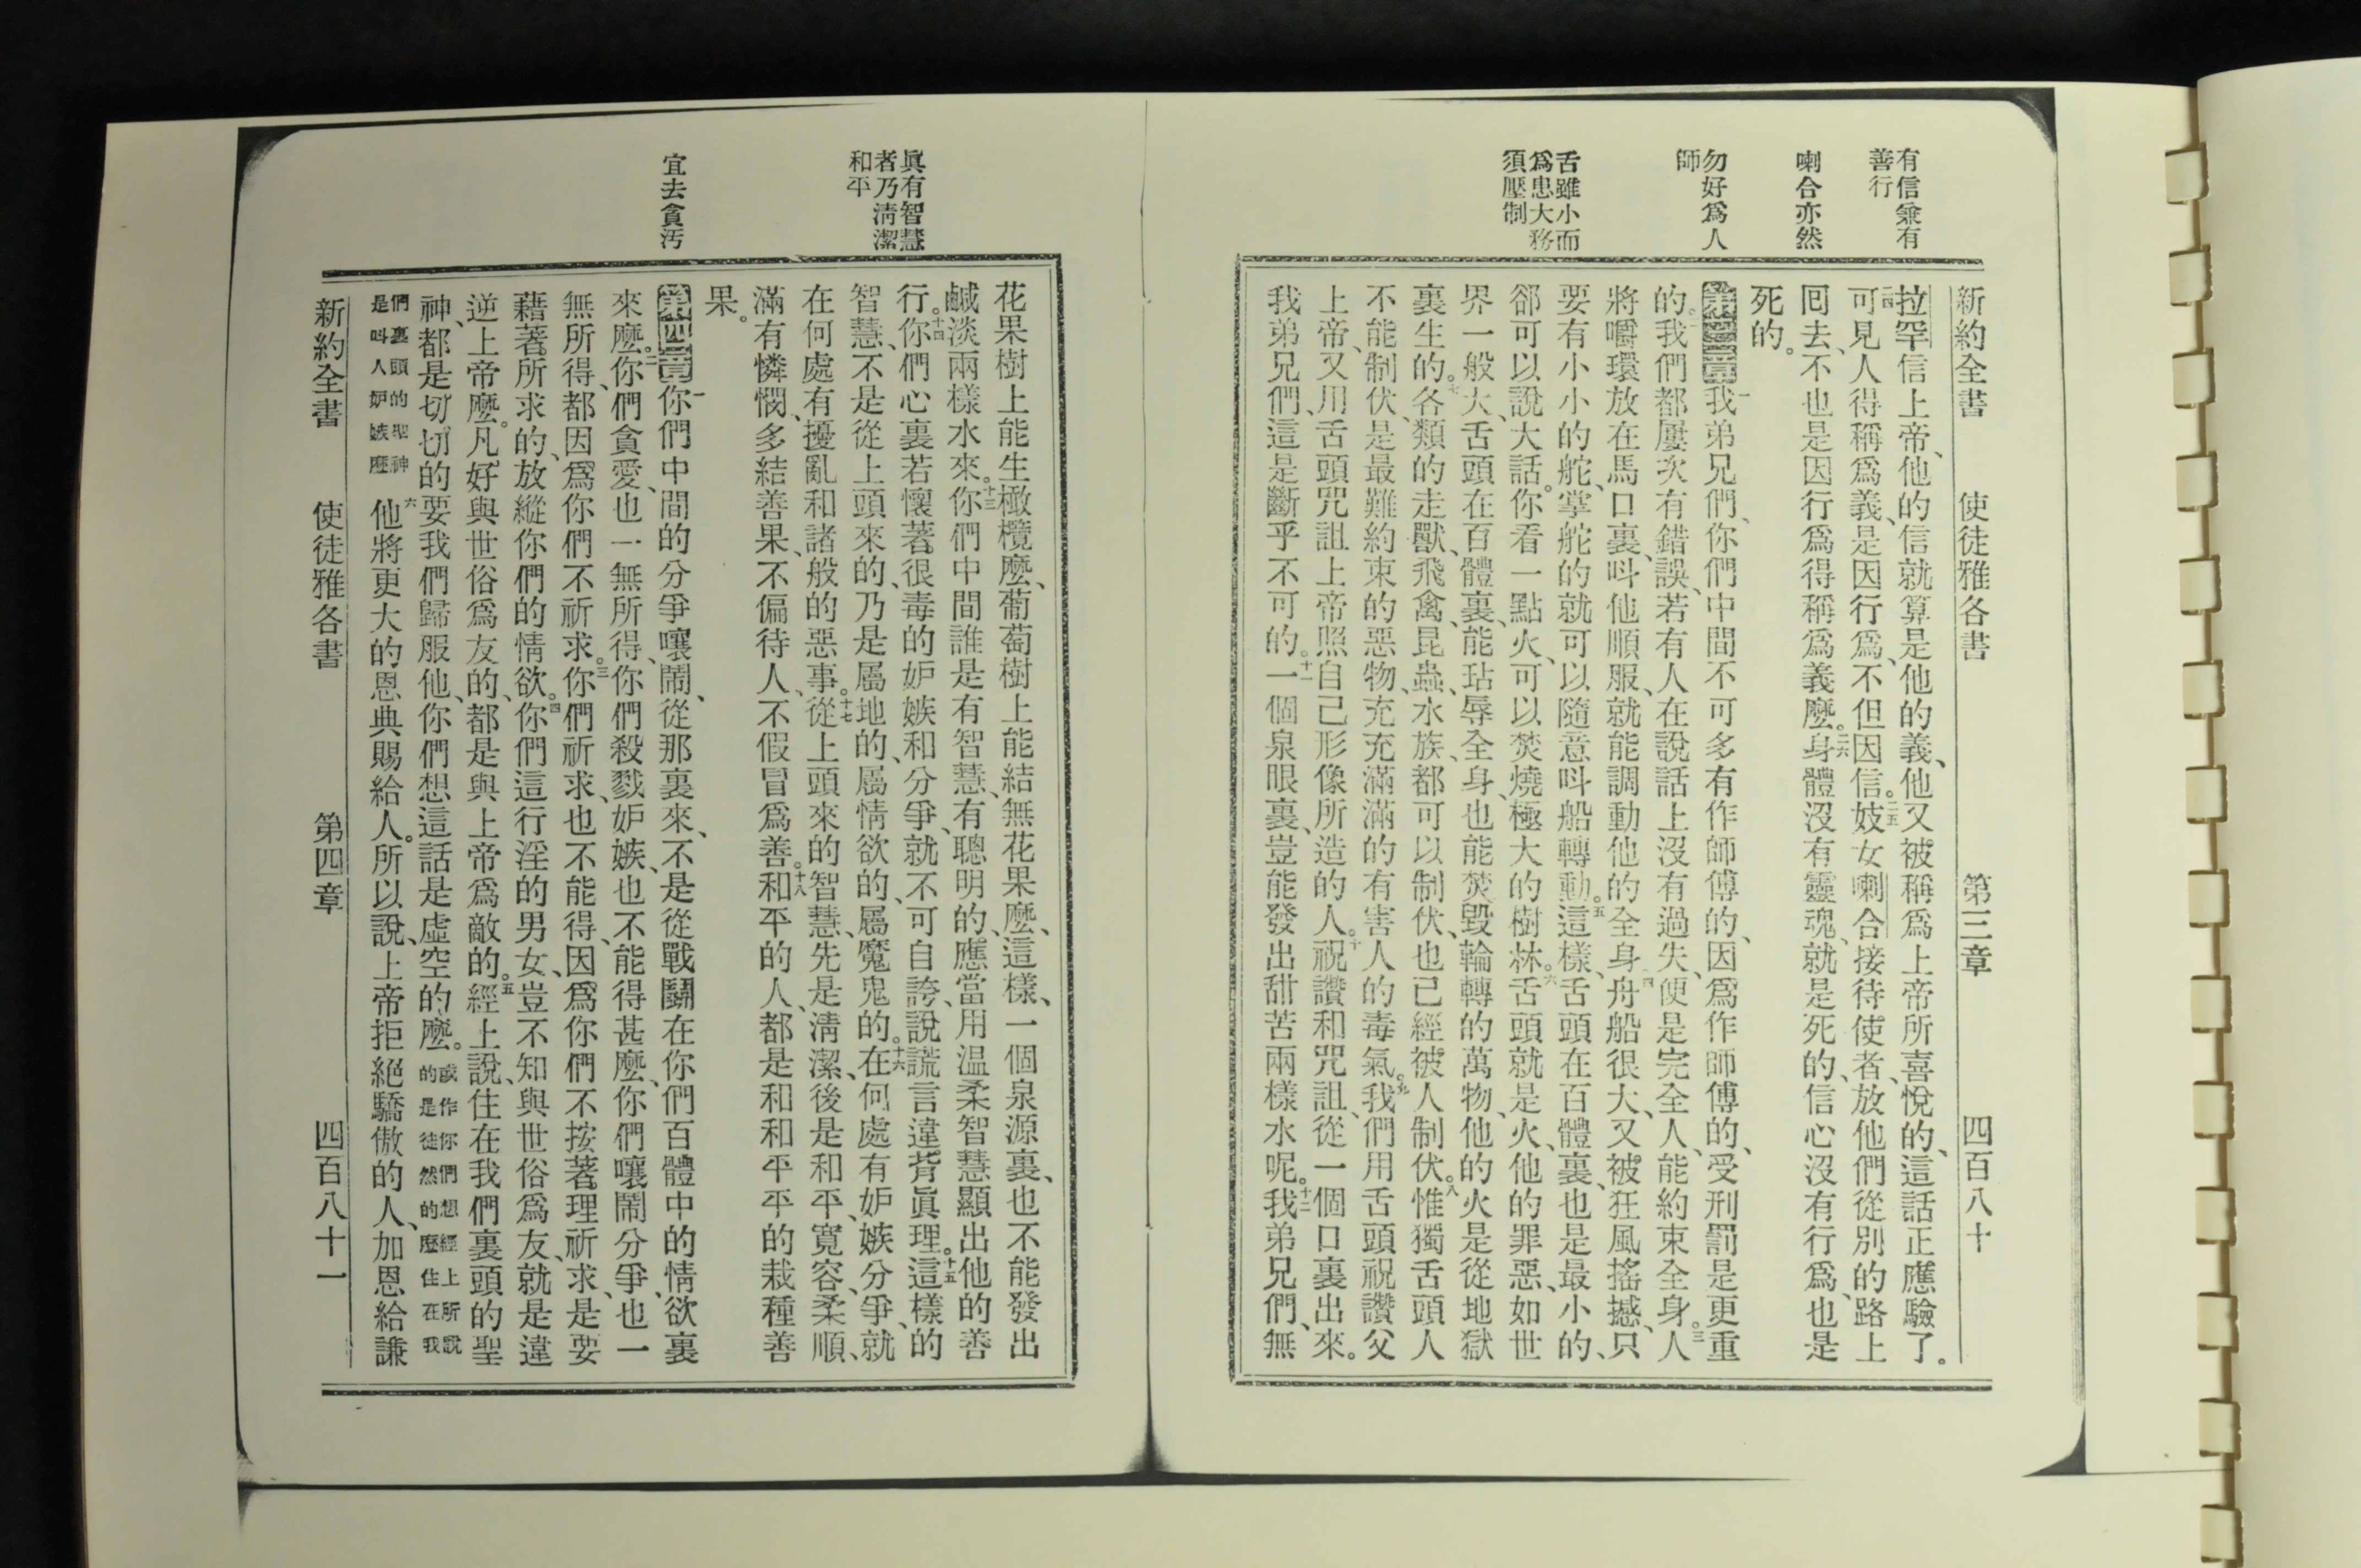 有信兼有
善行
喇合亦然
勿好爲人
師
舌雖小而
爲患大務
須壓制
新約全書 使徒雅各書 第三章 四百八十
拉罕信上帝、他的信就算是他的義、他又被稱爲上帝所喜悅的、這話正應驗了。
二四可見人得稱爲義、是因行爲、不但因信。二五妓女喇合接待使者、放他們從別的路上
回去、不也是因行爲得稱爲義麼。二六身體沒有靈魂、就是死的、信心沒有行爲、也是
死的。
第三章一我弟兄們、你們中間不可多有作師傅的、因爲作師傅的、受刑罰是更重
的。二我們都屢次有錯誤、若有人在說話上沒有過失、便是完全人、能約束全身。三人
將嚼環放在馬口裏、呌他順服、就能調動他的全身。四舟船很大、又被狂風搖撼、只
要有小小的舵、掌舵的就可以隨意呌船轉動。五這樣、舌頭在百體裏、也是最小的、
郤可以說大話。你看一點火、可以焚燒極大的樹林。六舌頭就是火、他的罪惡、如世
界一般大、舌頭在百體裏、能玷辱全身、也能焚毀輪轉的萬物、他的火是從地獄
裏生的。七各類的走獸、飛禽、昆蟲、水族、都可以制伏、也已經被人制伏。八惟獨舌頭人
不能制伏、是最難約束的惡物、充充滿滿的有害人的毒氣。九我們用舌頭祝讚父
上帝、又用舌頭咒詛上帝照自己形像所造的人。十祝讚和咒詛、從一個口裏出來。
我弟兄們、這是斷乎不可的。十一一個泉眼裏、豈能發出甜苦兩樣水呢。十二我弟兄們、無
眞有智慧
者乃淸潔
和平
宜去貪汚
花果樹上能生橄欖麼、葡萄樹上能結無花果麼、這樣、一個泉源裏、也不能發出
鹹淡兩樣水來。十三你們中間誰是有智慧、有聰明的、應當用温柔智慧顯出他的善
行。十四你們心裏若懷著很毒的妒嫉和分爭、就不可自誇、說謊言違背眞理。十五這樣的
智慧、不是從上頭來的、乃是屬地的、屬情欲的、屬魔鬼的。十六在何處有妒嫉分爭、就
在何處有擾亂和諸般的惡事。十七從上頭來的智慧、先是淸潔、後是和平、寬容、柔順、
滿有憐憫、多結善果、不偏待人、不假冒爲善。十八和平的人、都是和和平平的栽種善
果。
第四章一你們中間的分爭嚷鬧、從那裏來、不是從戰鬭在你們百體中的情欲裏
來麼。二你們貪愛、也一無所得、你們殺戮妒嫉、也不能得甚麼、你們嚷鬧分爭、也一
無所得、都因爲你們不祈求。三你們祈求、也不能得、因爲你們不按著理祈求、是要
藉著所求的、放縱你們的情欲。四你們這行淫的男女、豈不知與世俗爲友、就是違
逆上帝麼。凡好與世俗爲友的、都是與上帝爲敵的。五經上說、住在我們裏頭的聖
神、都是切切的要我們歸服他、你們想這話是虛空的麼。或作你們想經上所說的是徒然的麼住在我
們裏頭的聖神是呌人妒嫉麼六他將更大的恩典賜給人。所以說、上帝拒絕驕傲的人、加恩給謙
新約全書 使徒雅各書 第四章 四百八十一